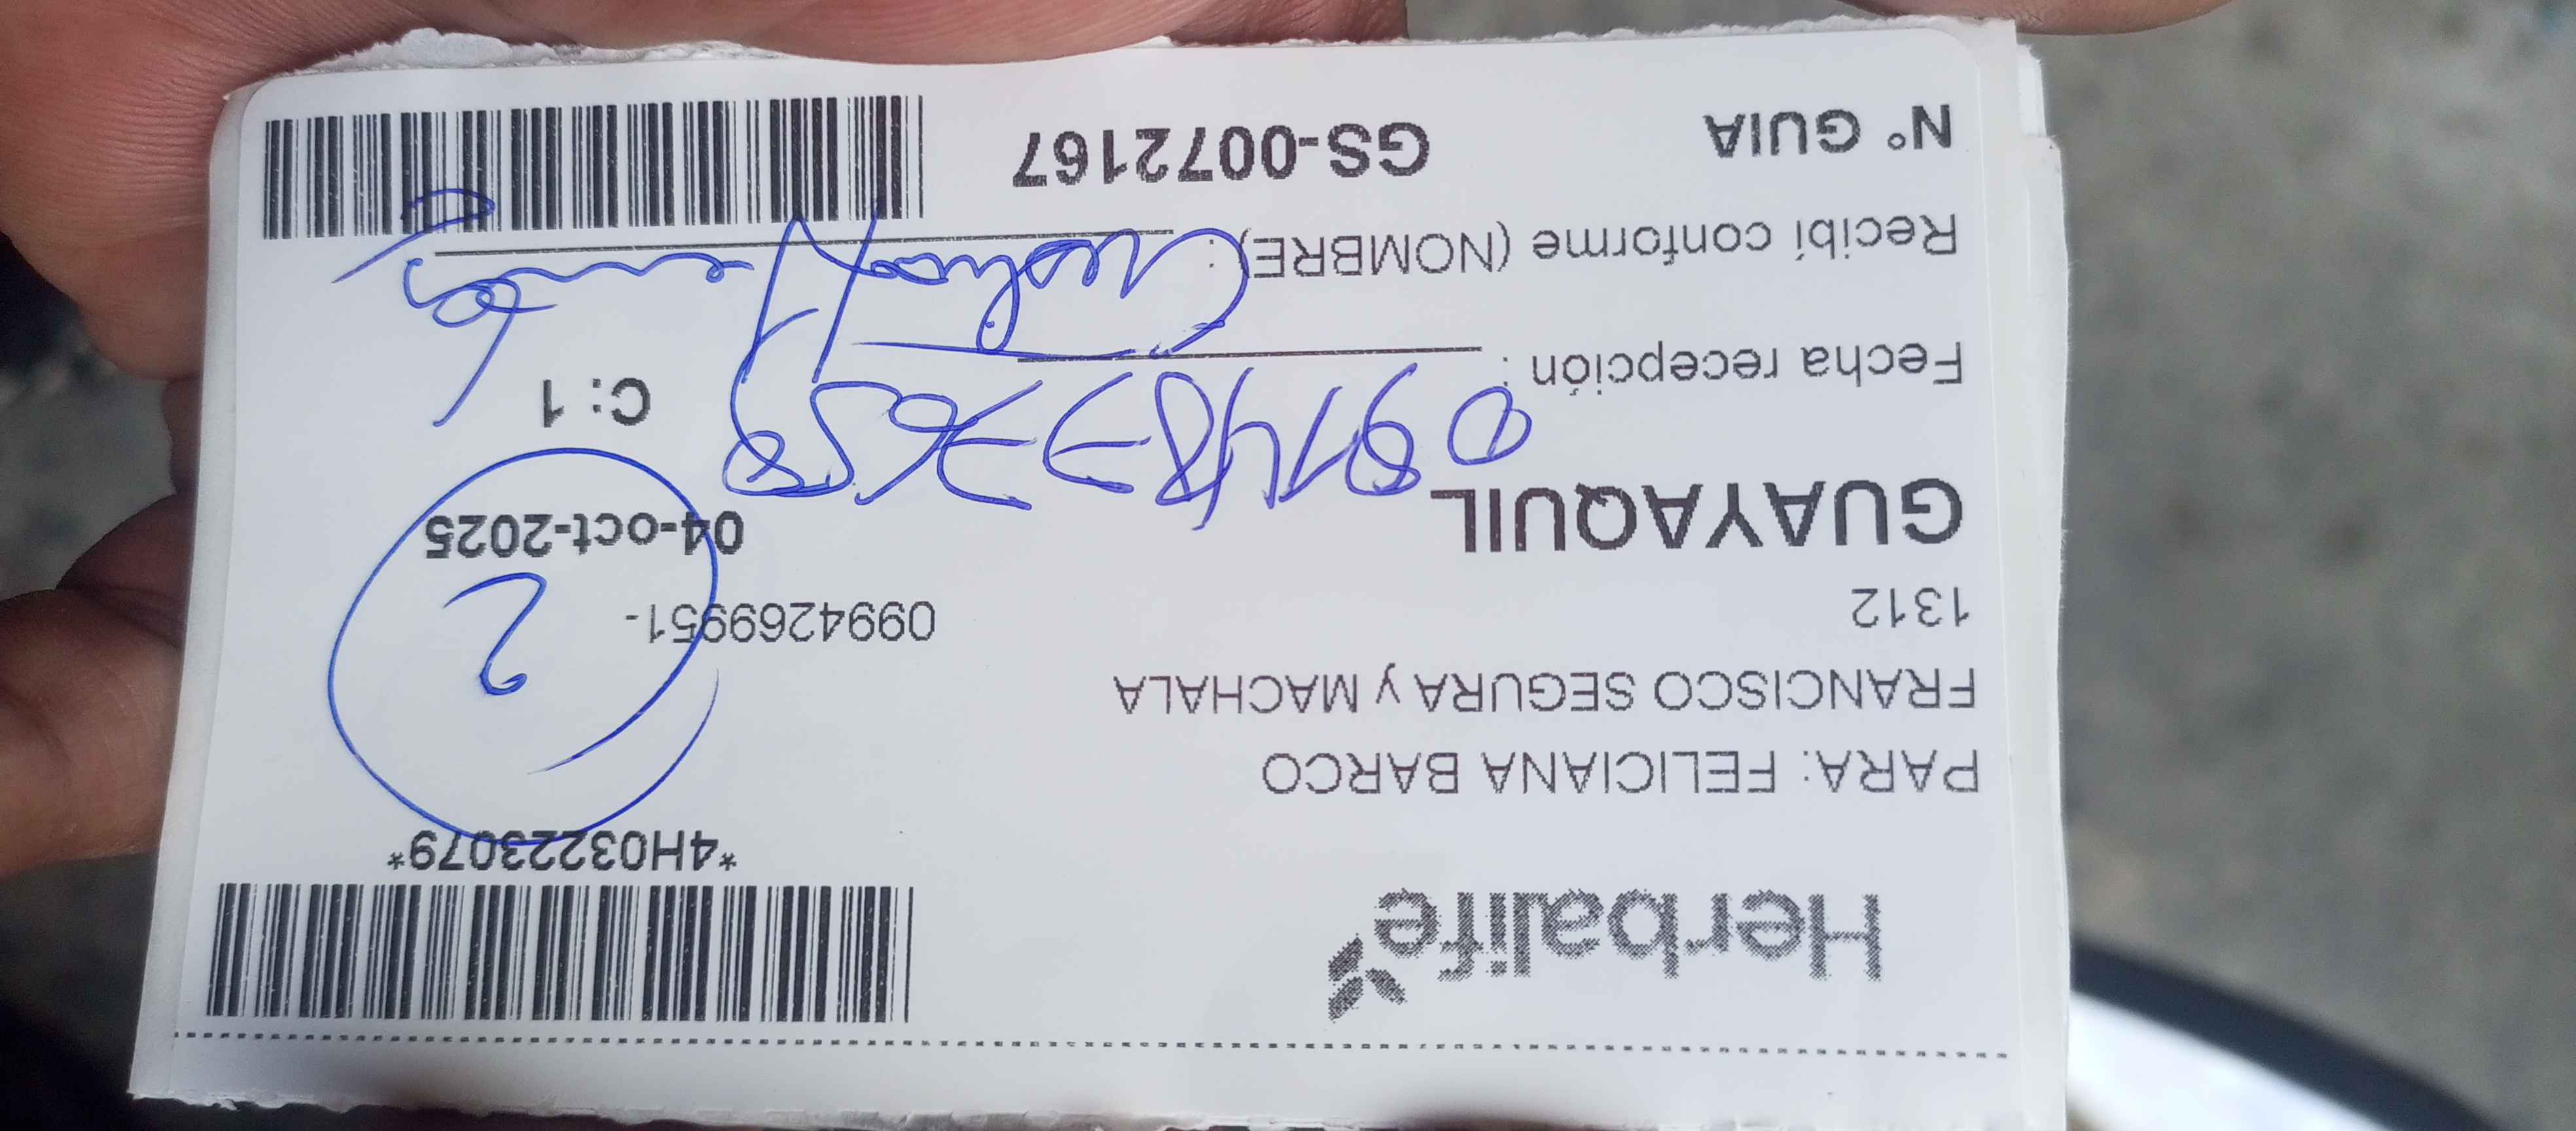 Herbalife
*4H03223079*
PARA: FELICIANA BARCO
FRANCISCO SEGURA y MACHALA
1312
0994269951-
2
GUAYAQUIL
04-oct-2025
C: 1
Fecha recepción :
Recibí conforme (NOMBRE) :
N° GUIA
GS-0072167